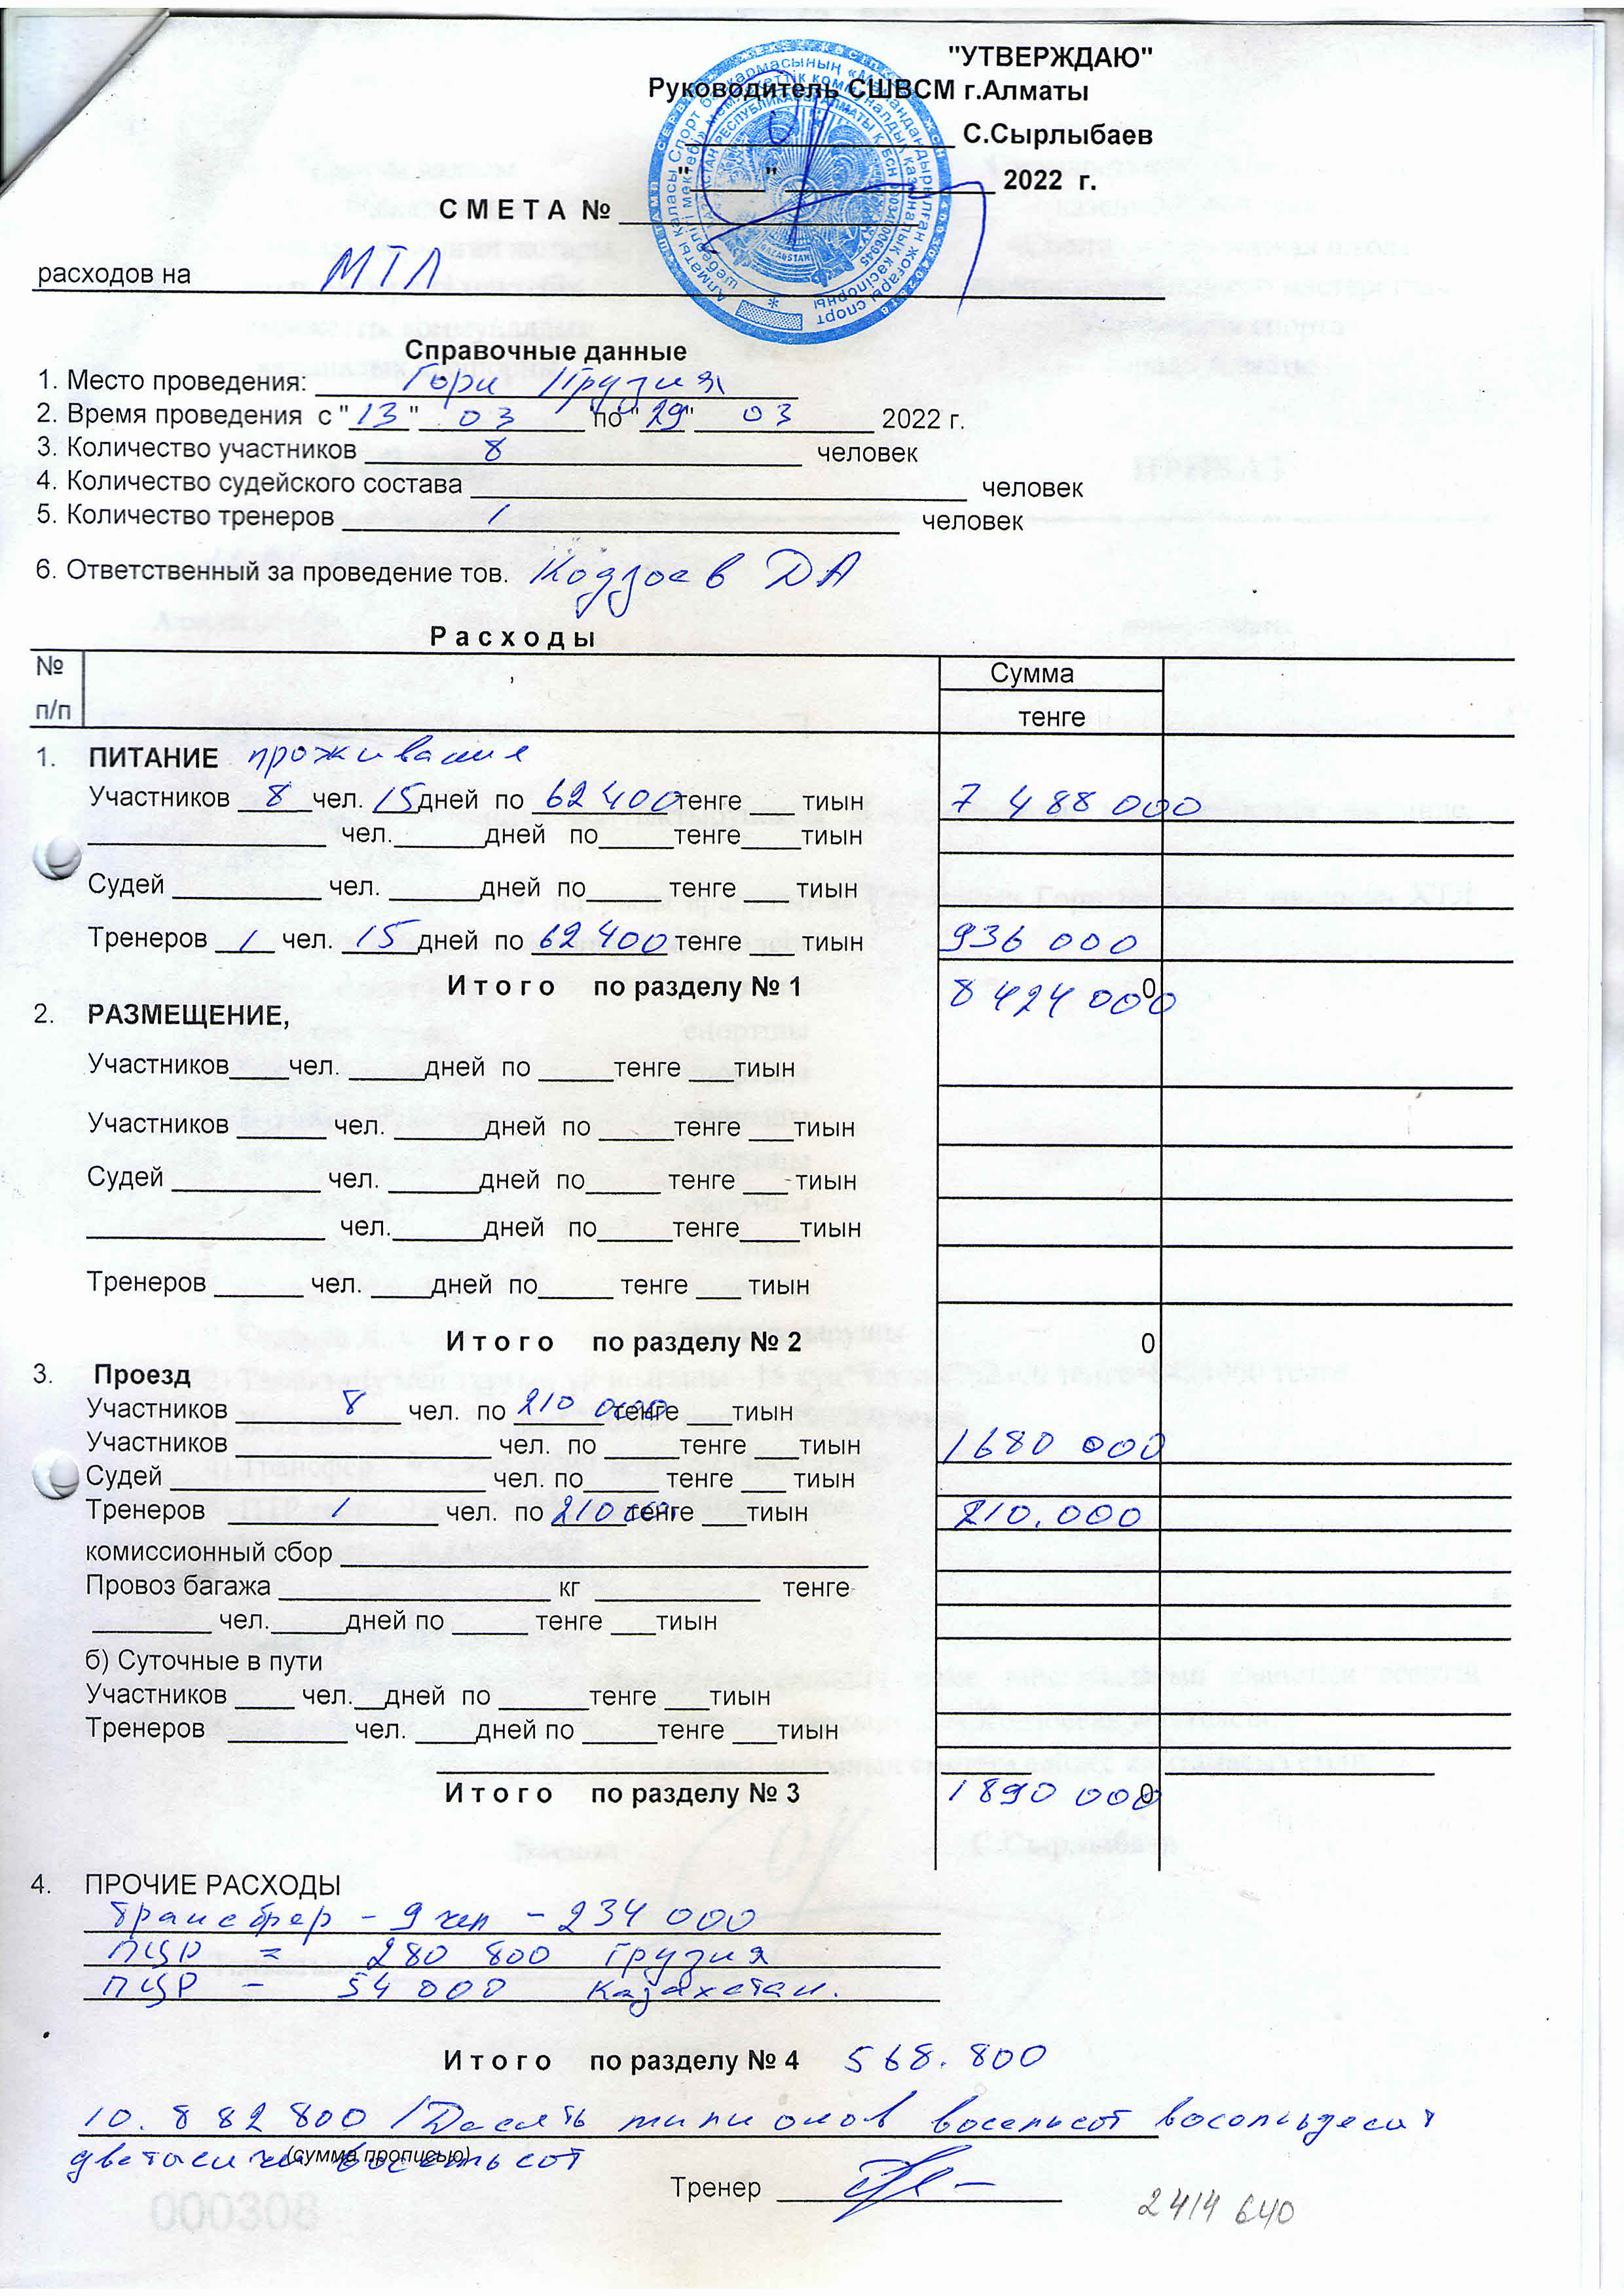 "УТВЕРЖДАЮ"
Руководитель СШВСМ г.Алматы
С.Сырлыбаев
"_____" ______________ 2022 г.
С М Е Т А №
расходов на МТЛ
Справочные данные
1. Место проведения: Гори Грузия
2. Время проведения с "13" 03 по "29" 03 2022 г.
3. Количество участников 8 человек
4. Количество судейского состава ______ человек
5. Количество тренеров 1 человек
6. Ответственный за проведение тов. Кодзоев ДА
Р а с х о д ы
№ п/п Сумма
тенге
1. ПИТАНИЕ проживания
Участников 8 чел. 15 дней по 62 400 тенге ___ тиын 7 488 000
______ чел.______дней по_____тенге____тиын
Судей ______ чел. ______дней по_____ тенге ___ тиын
Тренеров 1 чел. 15 дней по 62 400 тенге ___ тиын 936 000
И т о г о по разделу № 1 8 424 000 0
2. РАЗМЕЩЕНИЕ,
Участников____чел. _____дней по _____тенге ___тиын
Участников ______ чел. ______дней по _____тенге ___тиын
Судей __________ чел. ______дней по_____ тенге ___ тиын
______ чел.______дней по_____тенге____тиын
Тренеров ______ чел. ____дней по_____ тенге ___ тиын
И т о г о по разделу № 2 0
3. Проезд
Участников 8 чел. по 210 000 тенге ___тиын
Участников ______ чел. по _____тенге ___тиын 1680 000
Судей ______ чел. по_____ тенге ___ тиын
Тренеров 1 чел. по 210 000 тенге ___тиын 210.000
комиссионный сбор ______
Провоз багажа ______ кг ______ тенге
________ чел._____дней по _____ тенге ___тиын
б) Суточные в пути
Участников ____ чел.__дней по ______тенге ___тиын
Тренеров ________ чел. ____дней по _____тенге ___тиын
И т о г о по разделу № 3 1890 000 0
4. ПРОЧИЕ РАСХОДЫ
Трансфер - 9 чел - 234 000
ПЦР = 280 800 Грузия
ПЦР - 54 000 Казахстан.
И т о г о по разделу № 4 568.800
10. 882 800 /Десять милионов восемьсот восемьдесят
две тысячи восемьсот
(сумма прописью)
Тренер
2414 640
000308